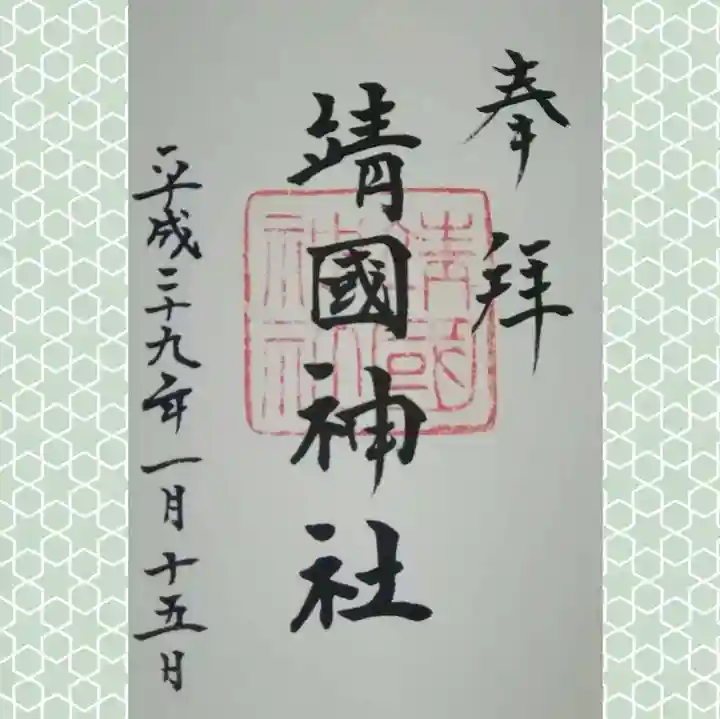 奉拝
靖國神社
靖国神社
平成二十九年一月十五日